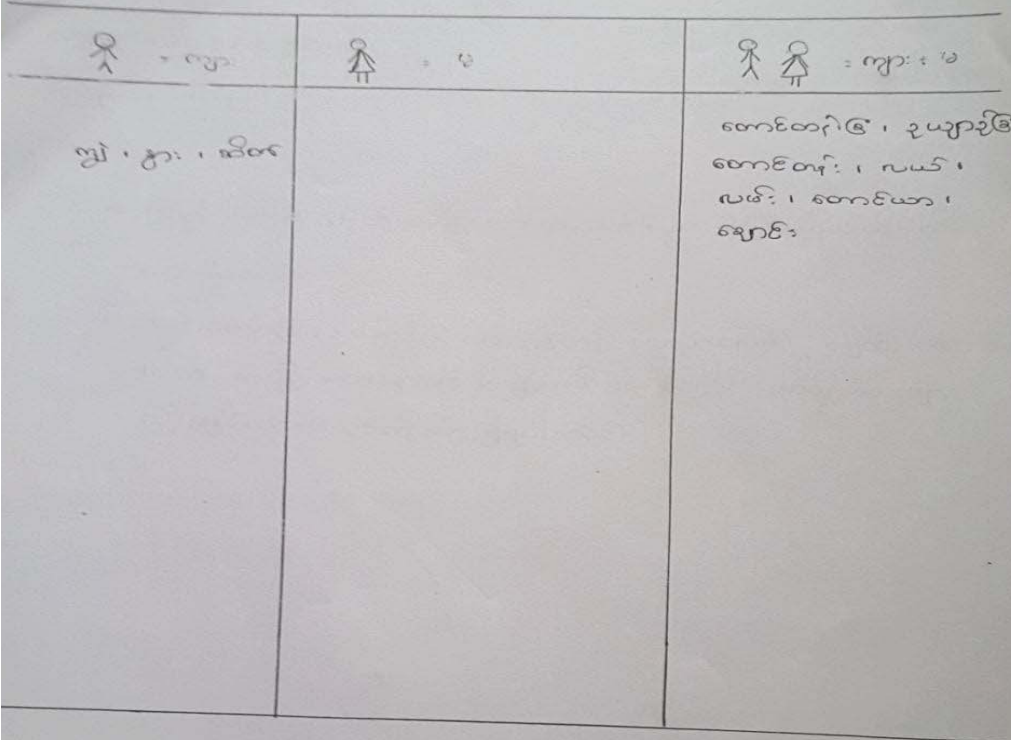 = ကျား
= မ
= ကျား + မ
ကျွဲ ၊ နွား ၊ ဆိတ်
တောင်တရံခြံ ၊ ဥယျာဉ်ခြံ
တောင်တန်း ၊ လယ် ၊
လမ်း ၊ တောင်ယာ ၊
ချောင်း